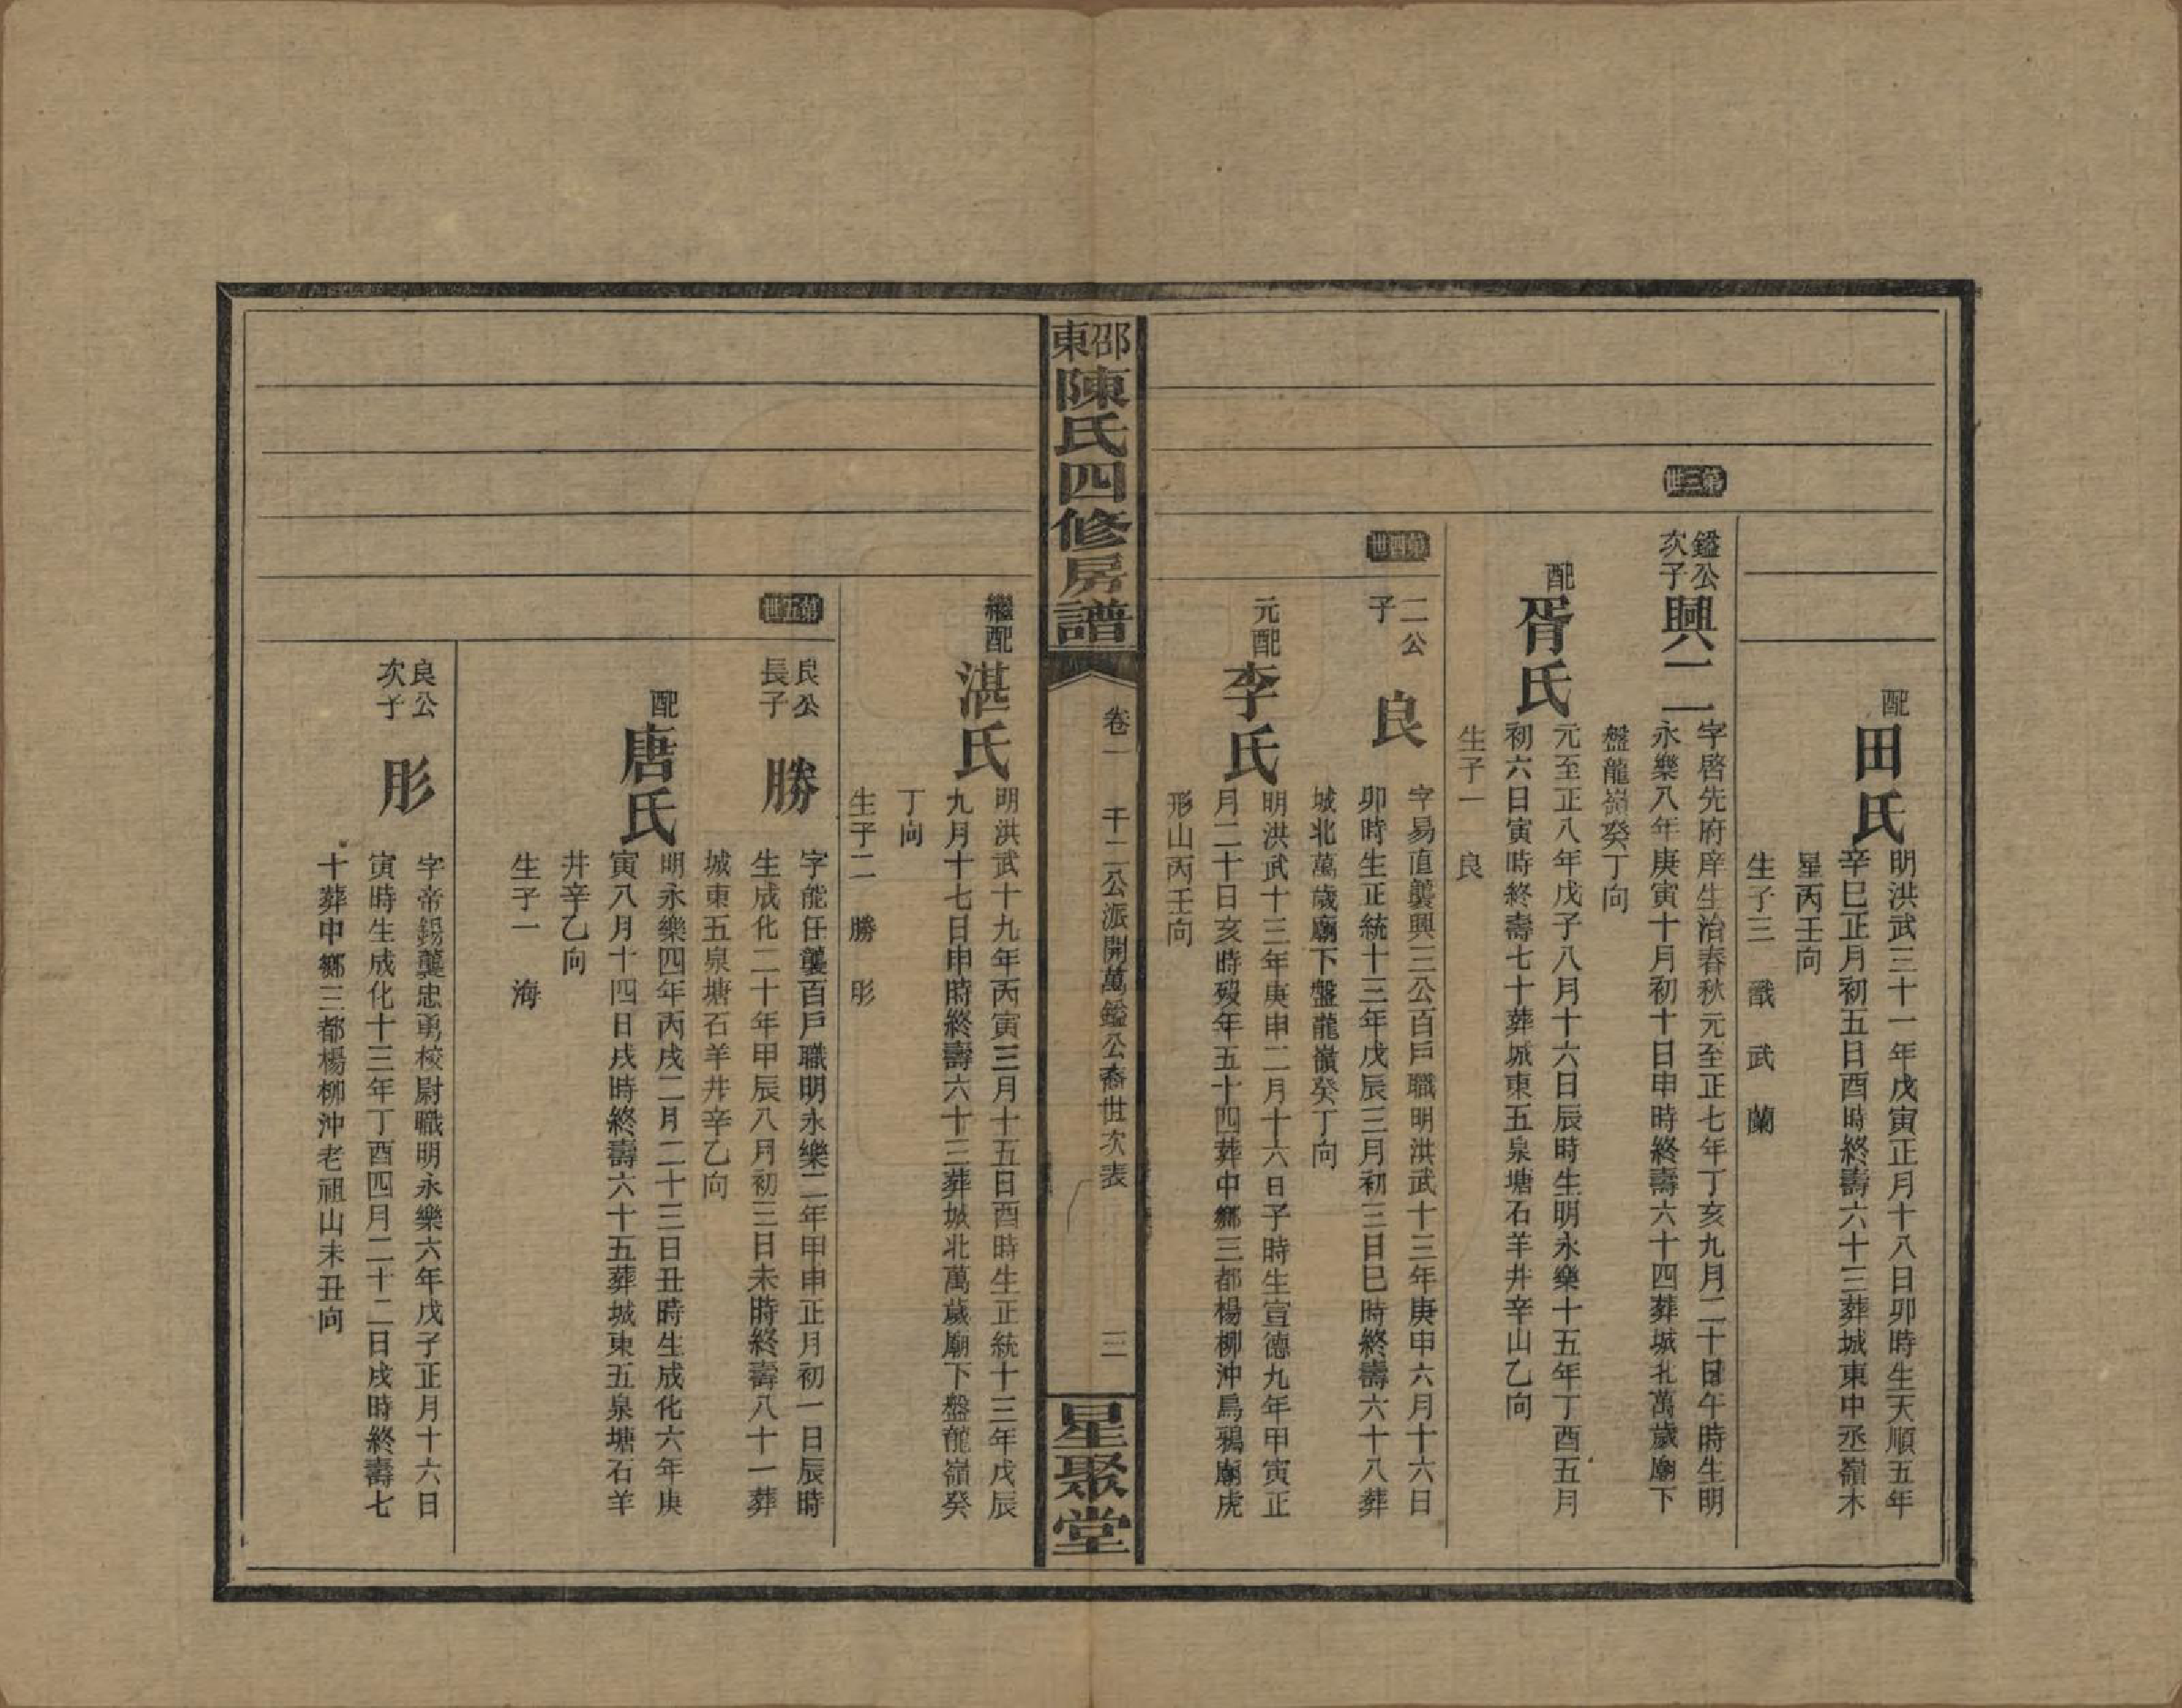 配
田氏
明洪武三十一年戊寅正月十八日卯時生天順五年
辛巳正月初五日酉時終壽六十三葬城東中丞嶺木
星丙壬向
生子三 戩 武 蘭
第三世
鎰公
次子
興二
字啓先府庠生治春秋元至正七年丁亥九月二十日午時生明
永樂八年庚寅十月初十日申時終壽六十四葬城北萬歲廟下
盤龍嶺癸丁向
配
胥氏
元至正八年戊子八月十六日辰時生明永樂十五年丁酉五月
初六日寅時終壽七十葬城東五泉塘石羊井辛山乙向
生子一 良
第四世
二公
子
良
字易直襲興三公百戶職明洪武十三年庚申六月十六日
卯時生正統十三年戊辰三月初三日巳時終壽六十八葬
城北萬歲廟下盤龍嶺癸丁向
元配
李氏
明洪武十三年庚申二月十六日子時生宣德九年甲寅正
月二十日亥時歿年五十四葬中鄉三都楊柳沖烏鴉廟虎
形山丙壬向
邵東
陳氏四修房譜
卷一 千二公派開萬鎰公裔世次表 三
星聚堂
繼配
湛氏
明洪武十九年丙寅三月十五日酉時生正統十三年戊辰
九月十七日申時終壽六十三葬城北萬歲廟下盤龍嶺癸
丁向
生子二 勝 肜
第五世
良公
長子
勝
字能任襲百戶職明永樂二年甲申正月初一日辰時
生成化二十年甲辰八月初三日未時終壽八十一葬
城東五泉塘石羊井辛乙向
配
唐氏
明永樂四年丙戌二月二十三日丑時生成化六年庚
寅八月十四日戌時終壽六十五葬城東五泉塘石羊
井辛乙向
生子一 海
良公
次子
肜
字帝錫襲忠勇校尉職明永樂六年戊子正月十六日
寅時生成化十三年丁酉四月二十二日戌時終壽七
十葬中鄉三都楊柳沖老祖山未丑向